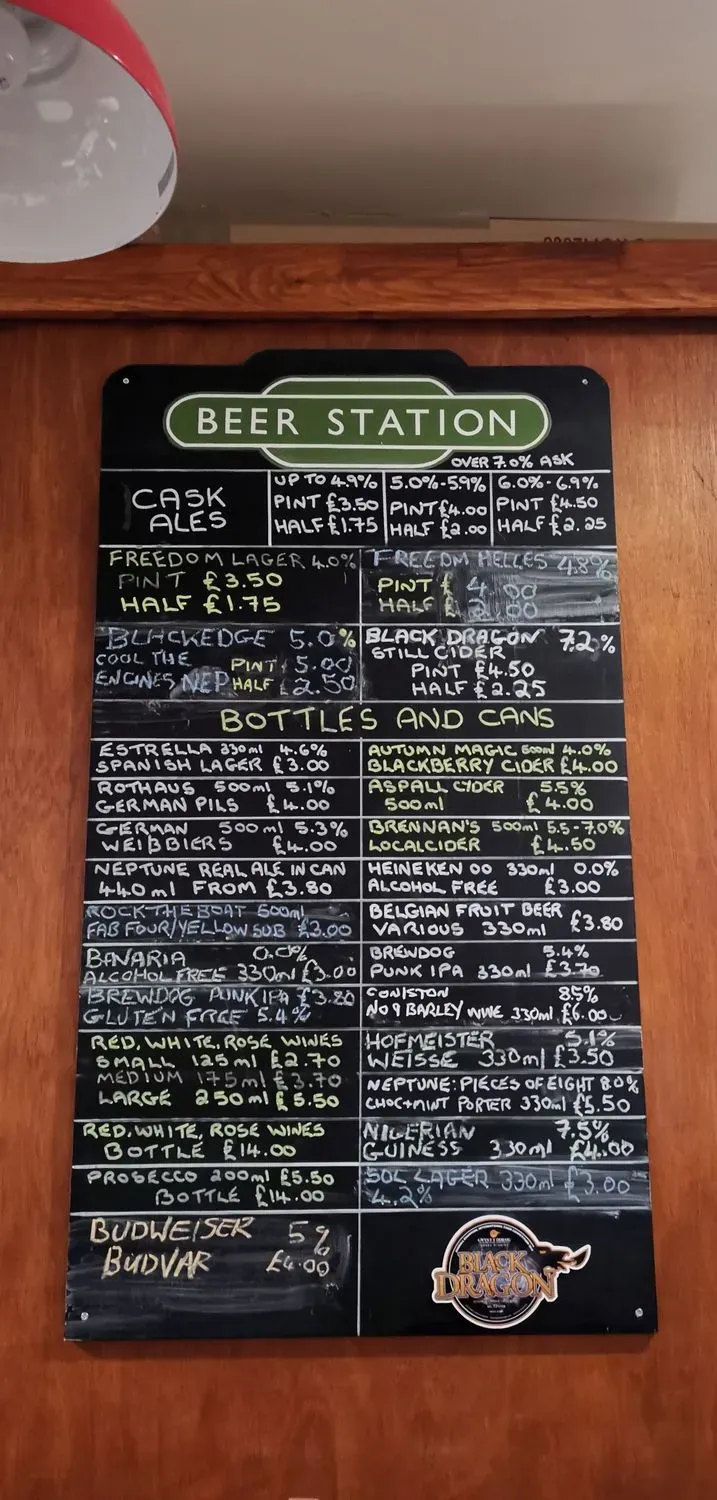 BEER STATION
OVER 7.0% ASK
CASK
ALES
UP TO 4.9%
PINT £3.50
HALF £1.75
5.0%-5.9%
PINT £4.00
HALF £2.00
6.0%-6.9%
PINT £4.50
HALF £2.25
FREEDOM LAGER 4.0%
PINT £3.50
HALF £1.75
FREEDM HELLES 4.8%
PINT £ 4 00
HALF £ 2.00
BLACKEDGE 5.0%
COOL THE
ENGINES NEP
PINT £5.00
HALF £2.50
BLACK DRAGON 7.2%
STILL CIDER
PINT £4.50
HALF £2.25
BOTTLES AND CANS
ESTRELLA 330ml 4.6%
SPANISH LAGER £3.00
AUTUMN MAGIC 500ml 4.0%
BLACKBERRY CIDER £4.00
ROTHAUS 500ml 5.1%
GERMAN PILS £4.00
ASPALL CYDER 5.5%
500ml £4.00
GERMAN 500ml 5.3%
WEIßBIERS £4.00
BRENNAN'S 500ml 5.5-7.0%
LOCALCIDER £4.50
NEPTUNE REAL ALE IN CAN
440ml FROM £3.80
HEINEKEN 00 330ml 0.0%
ALCOHOL FREE £3.00
ROCK THE BOAT 500ml
FAB FOUR/YELLOW SUB £3.00
BELGIAN FRUIT BEER
VARIOUS 330ml £3.80
BAVARIA 0.0%
ALCOHOL FREE 330ml £3.00
BREWDOG 5.4%
PUNK IPA 330ml £3.70
BREWDOG PUNK IPA £3.80
GLUTEN FREE 5.4%
CONISTON 8.5%
NO 9 BARLEY WINE 330ml £6.00
RED, WHITE, ROSE WINES
SMALL 125ml £2.70
MEDIUM 175ml £3.70
LARGE 250ml £5.50
HOFMEISTER 5.1%
WEISSE 330ml £3.50
NEPTUNE: PIECES OF EIGHT 8.0%
CHOC+MINT PORTER 330ml £5.50
RED, WHITE, ROSE WINES
BOTTLE £14.00
NIGERIAN 7.5%
GUINESS 330ml £4.00
PROSECCO 200ml £5.50
BOTTLE £14.00
SOL LAGER 330ml £3.00
4.2%
BUDWEISER 5%
BUDVAR £4.00
BLACK
DRAGON